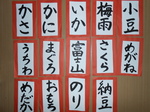 小豆
梅雨
いか
かに
かさ
めがね
さくら
富士山
まぐろ
うちわ
納豆
のり
めだか